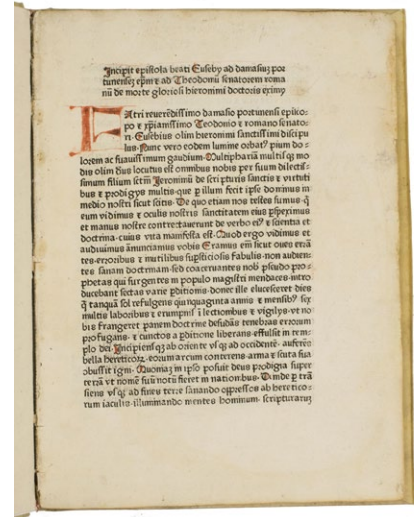 Incipit epistola beati Eusebij ad damasiuʒ por
tuneñseʒ epm̄ ⁊ ad Theodoniū senatorem roma
nū de morte gloriosi hieronimi doctoris eximy
PAtri reuerēdissimo damasio portunensi episco
po ⁊ xp̄ianissimo Teodonio ⁊ romano senato
ri·Eusebius olim hieronimi sanctissimi discipu
lus·Nunc vero eodem lumine orbat⁹ pium do
lorem ac suauissimum gaudium·Multiphariā multisqꝫ mo
dis olim deus locutus est omnibus nobis per suum dilectis
simum filium sctm̄ Jeronimū de scripturis sanctis ⁊ virtuti
bus ⁊ prodigys multis·que ꝑ illum fecit ipse dominus in
medio nostri sicut scitis·De quo etiam nos testes sumus·q̄
eum vidimus ⁊ oculis nostris sanctitatem eius ꝑspeximus
et manus nostre contrectauerunt de verbo ei⁹ ⁊ scientia et
doctrina·cuius vita manifesta est·Quod ergo vidimus et
audiuimus annunciamus vobis Eramus em̄ sicut oues errā
tes·erroribus ⁊ inutilibus supsticiosis fabulis·non audien
tes sanam doctrinam·sed coaceruantes nob pseudo pro
phetas qui surgentes in populo magistri mendaces·intro
ducebant sectas varie ꝑditionis·donec ille elucesceret dies
q̄ tanquā sol refulgens quinquaginta annis ⁊ mensib⁹ sex
multis laboribus ⁊ erumpnis ī lectionibus ⁊ vigilys·vt no
bis frangeret panem doctrine defudās tenebras errorum
profugans·⁊ cunctos a ꝑditione liberans·effulsit in tem
plo dei·Incipiensqꝫ ab oriente vsqꝫ ad occidentē·auferēs
bella hereticoꝝ·eorum arcum conterens·arma ⁊ scuta sua
obussit igni·Quoniaʒ in ipso posuit deus prodigia super
terrā vt nomē suū notū fieret in nationibus·Vnde ꝑ trā
siens vsqꝫ ad fines terre sanando oppressos ab heretico
rum iaculis·illuminando mentes hominum·scripturaruʒ